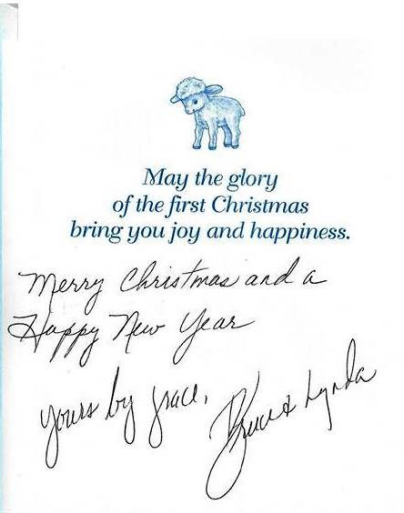 May the glory
of the first Christmas
bring you joy and happiness.
Merry Christmas and a
Happy New Year
yours by grace,
Bruce & Lynda